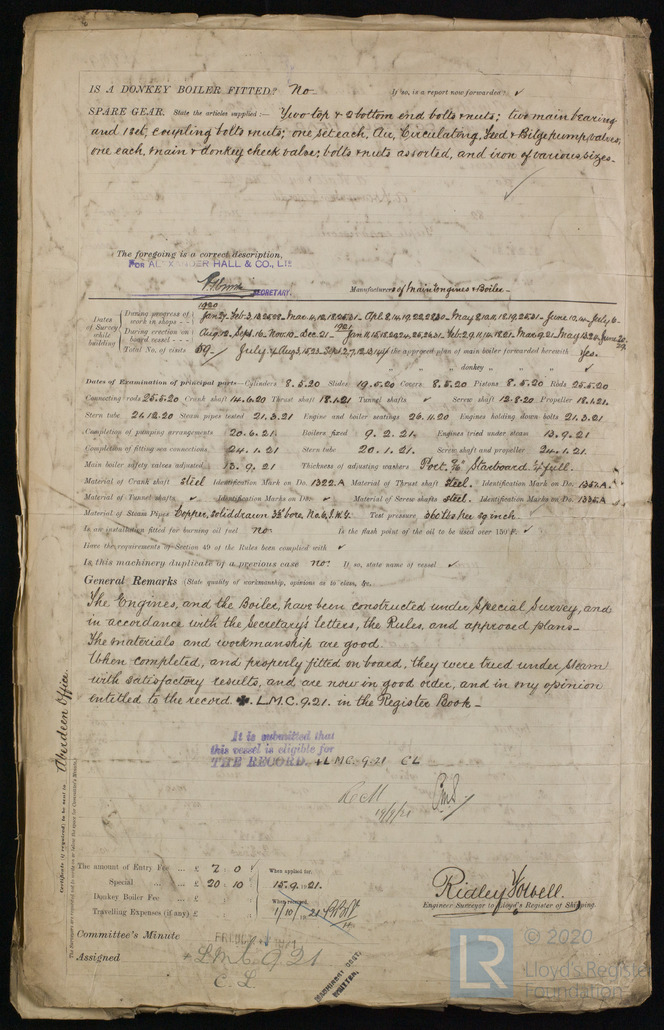 IS A DONKEY BOILER FITTED? No. If so, is a report now forwarded? ✓
SPARE GEAR. State the articles supplied :— Two top & 2 bottom end bolts & nuts; two main bearing
and 1 set, coupling bolts & nuts; one set each, Air, Circulating, Feed & Bilge pump valves,
one each, main & donkey check valve; bolts & nuts assorted, and iron of various sizes.
The foregoing is a correct description,
FOR ALEXANDER HALL & CO., LTD
SECRETARY. Manufacturers of Main Engines & Boiler.
Dates of Survey while building
During progress of work in shops - - 1920 Jan 27. Feb. 3.13.25.28 Mar. 4.12.18.25.31 Apl. 8.14.19.22.28.30 May 8.10.11.12.19.25.31 June 10. July 6
During erection on board vessel - - - Aug. 12. Sept. 16. Nov. 10. Dec. 21 1921 Jan. 11.15.18.20.24.25.26.31 Feb. 2.9.11.14.18.21 Mar. 9.21 May 13.20 June 20.29
Total No. of visits 59. July 4 Aug 3.15.23 Sep 1.2.7.12.13.14 Is the approved plan of main boiler forwarded herewith Yes.
" " " donkey " " " ✓
Dates of Examination of principal parts—Cylinders 8.5.20 Slides 19.5.20 Covers 8.5.20 Pistons 8.5.20 Rods 25.5.20
Connecting rods 25.5.20 Crank shaft 14.6.20 Thrust shaft 18.1.21 Tunnel shafts ✓ Screw shaft 12.8.20 Propeller 18.1.21
Stern tube 21.12.20 Steam pipes tested 21.3.21 Engine and boiler seatings 26.11.20 Engines holding down bolts 21.3.21
Completion of pumping arrangements 20.6.21. Boilers fixed 9.2.21. Engines tried under steam 13.9.21
Completion of fitting sea connections 24.1.21 Stern tube 20.1.21. Screw shaft and propeller 24.1.21.
Main boiler safety valves adjusted 13.9.21 Thickness of adjusting washers Port Starboard full.
Material of Crank shaft Steel Identification Mark on Do. 1322.A Material of Thrust shaft Steel. Identification Mark on Do. 1352.A.
Material of Tunnel shafts ✓ Identification Marks on Do. ✓ Material of Screw shafts Steel. Identification Marks on Do. 1335.A
Material of Steam Pipes Copper, solid drawn bore, Test pressure 360 lbs per sq inch.
Is an installation fitted for burning oil fuel No. Is the flash point of the oil to be used over 150°F. ✓
Have the requirements of Section 49 of the Rules been complied with ✓
Is this machinery duplicate of a previous case No. If so, state name of vessel ✓
General Remarks (State quality of workmanship, opinions as to class, &c.
The Engines, and the Boiler, have been constructed under Special Survey, and
in accordance with the Secretary's letters, the Rules, and approved plans.
The materials and workmanship are good.
When completed, and properly fitted on board, they were tried under steam
with satisfactory results, and are now in good order, and in my opinion
entitled to the record ✠. L.M.C. 9.21. in the Register Book.
It is submitted that
this vessel is eligible for
THE RECORD. + LMC. 9.21 CL
Certificate (if required) to be sent to Aberdeen Office.
The amount of Entry Fee ... £ 2 . 0 When applied for,
Special ... £ 20 . 10 15.9.1921.
Donkey Boiler Fee ... £ When received,
Travelling Expenses (if any) £ 1/10/1921
Ridley Howell.
Engineer Surveyor to Lloyd's Register of Shipping.
Committee's Minute
Assigned + LMC 9.21
C. L.
MACHINERY CERT. WRITTEN.
LR © 2020
Lloyd's Register
Foundation